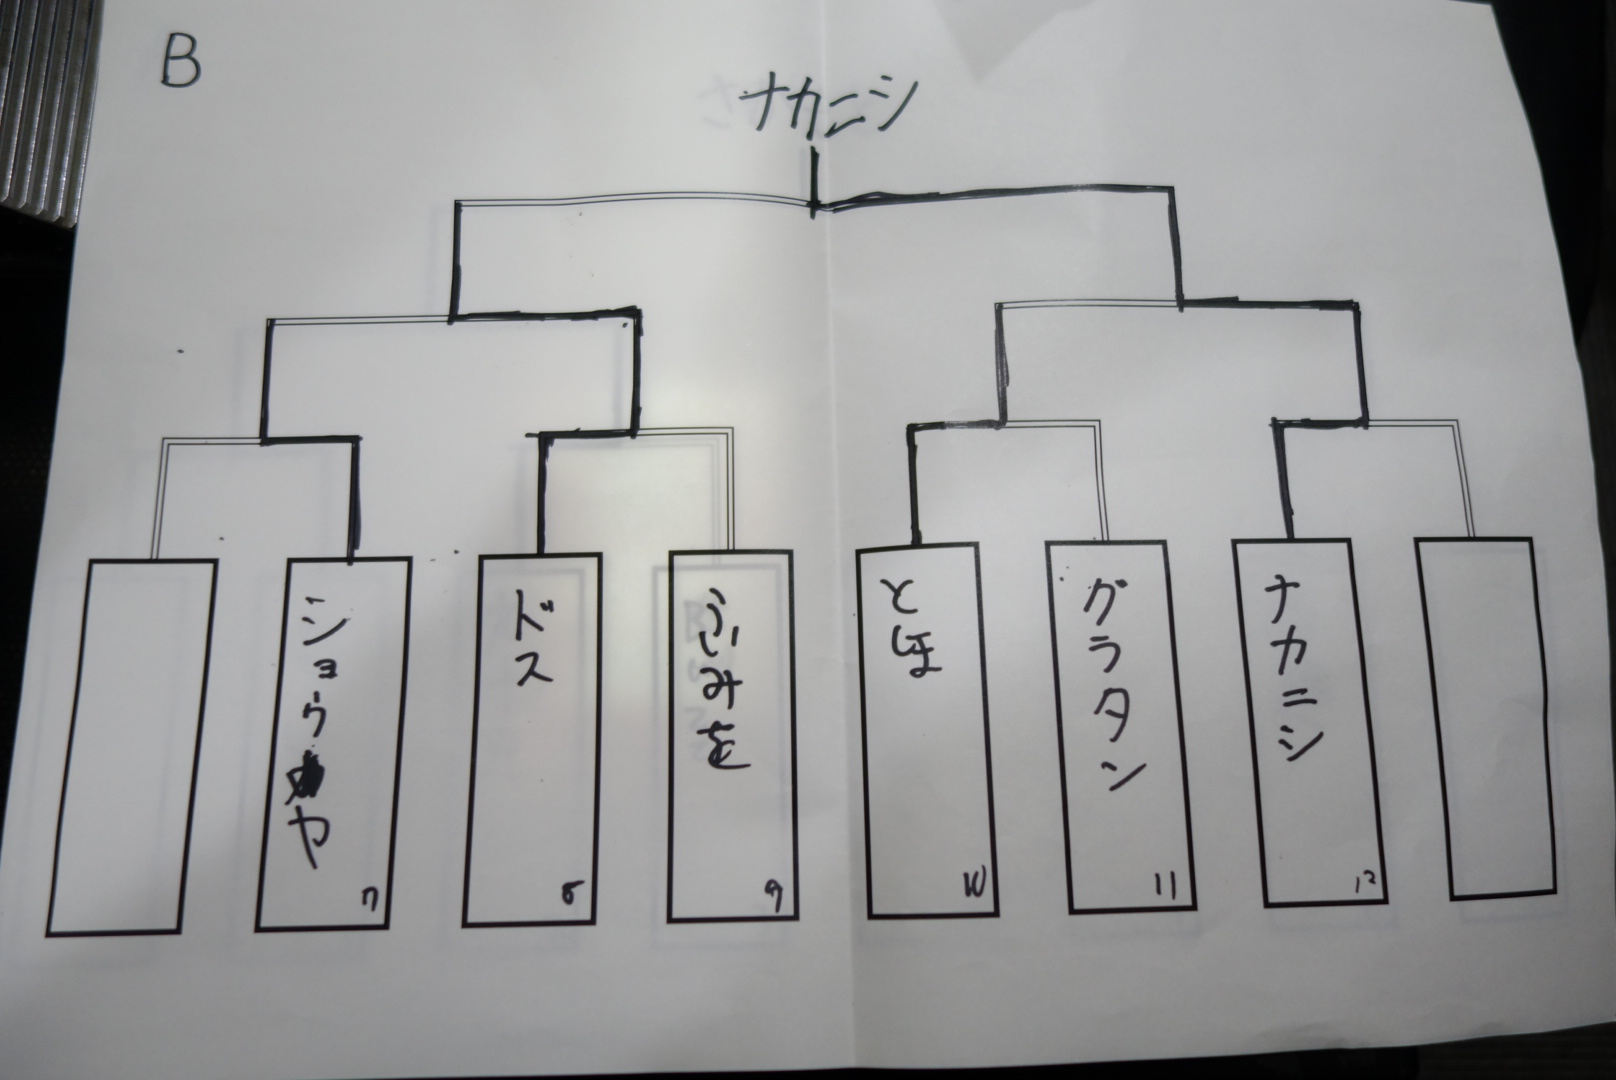 B
ナカニシ
ジョウヤ
7
ドス
8
ふじみを
9
とほ
10
グラタン
11
ナカニシ
12